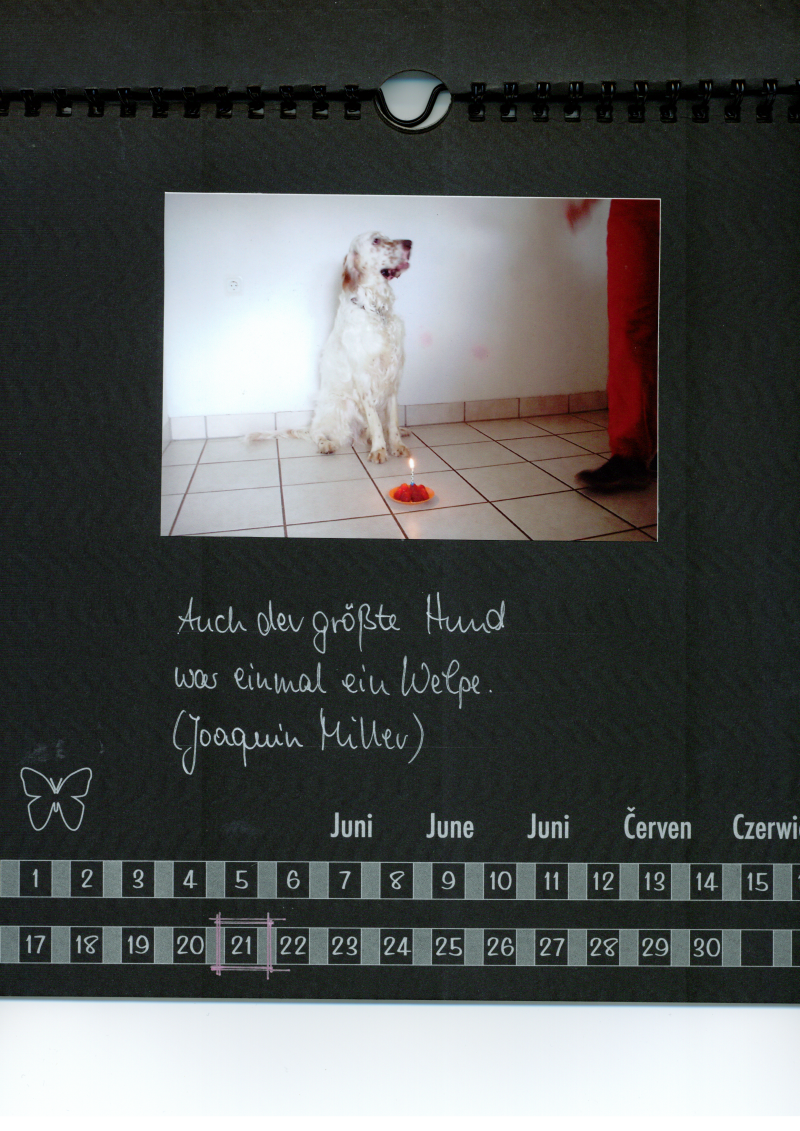 Auch der größte Hund
war einmal ein Welpe.
(Joaquin Miller)
Juni June Juni Červen
1 2 3 4 5 6 7 8 9 10 11 12 13 14 15
17 18 19 20 21 22 23 24 25 26 27 28 29 30